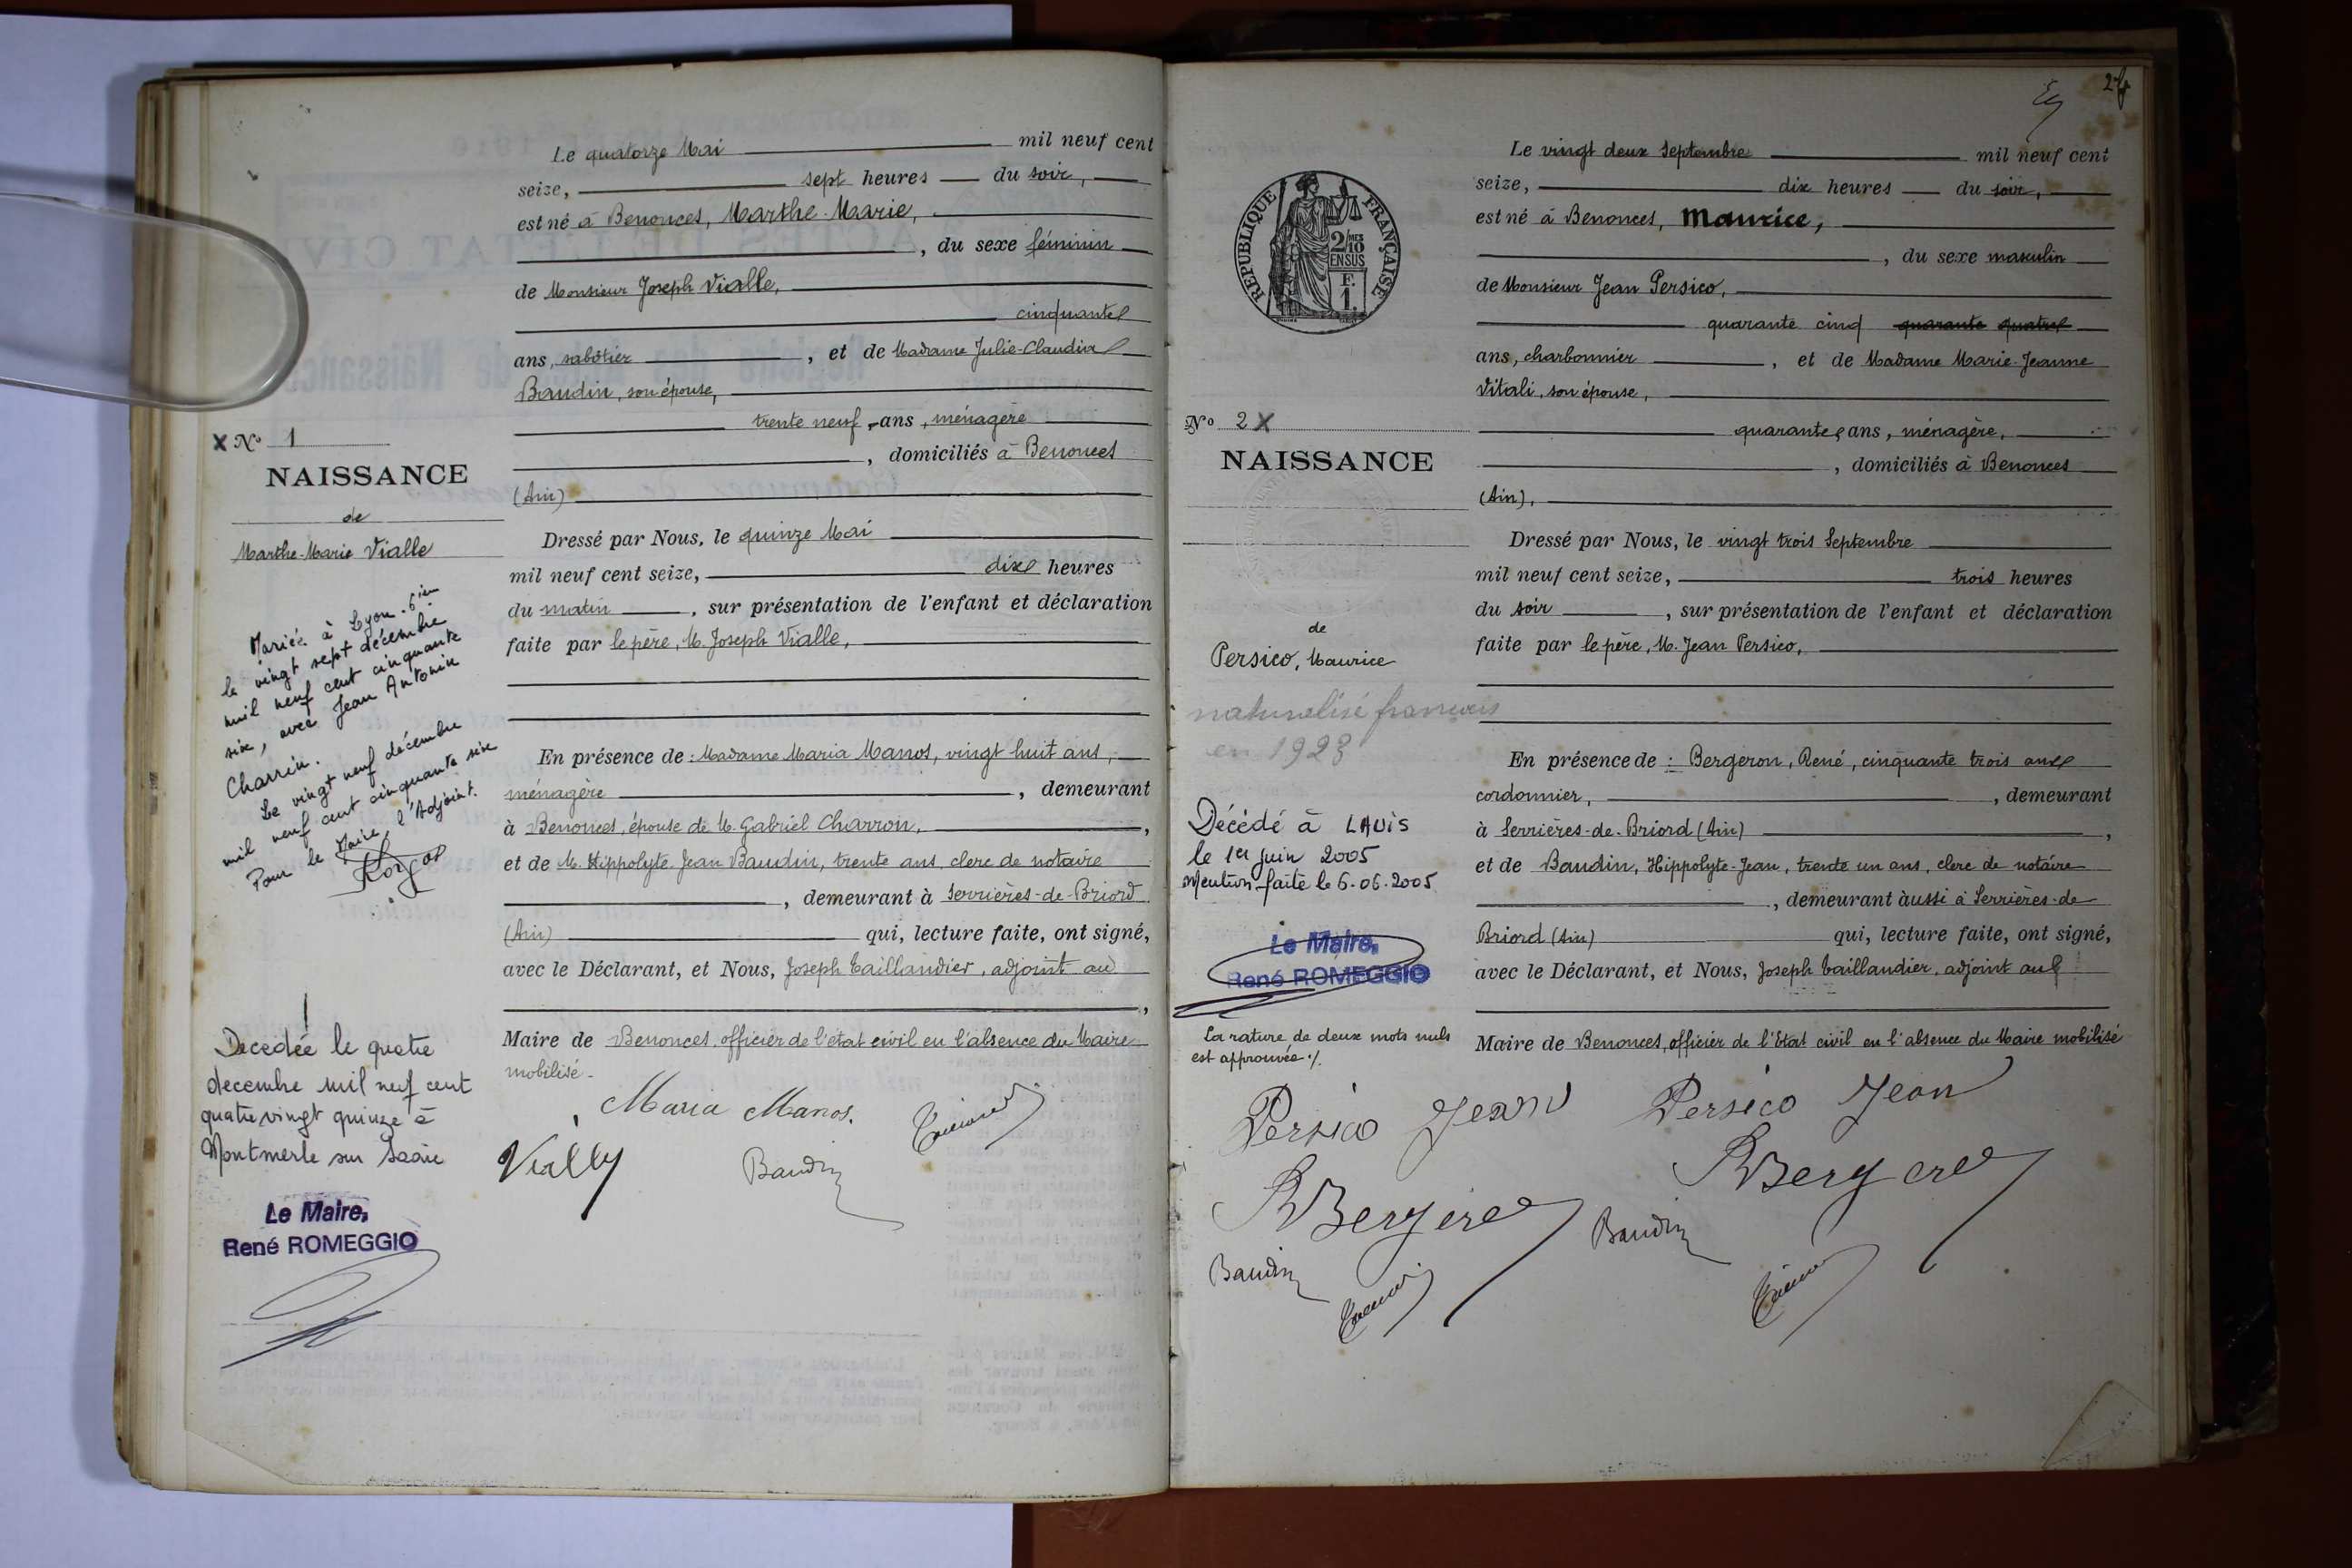 Le quatorze Mai mil neuf cent
seize, sept heures du soir,
est né à Benonces, Marthe-Marie,
, du sexe féminin
de Monsieur Joseph Vialle,
cinquante
ans, sabôtier , et de Madame Julie-Claudia
Baudin, son épouse,
trente neuf ans, ménagère
, domiciliés à Benonces
(Ain)
Dressé par Nous, le quinze Mai
mil neuf cent seize, dix heures
du matin , sur présentation de l'enfant et déclaration
faite par le père, M. Joseph Vialle,
En présence de : Madame Maria Manos, vingt huit ans,
ménagère , demeurant
à Benonces, épouse de M. Gabriel Charron, ,
et de M. Hippolyte Jean Baudin, trente ans, clerc de notaire
, demeurant à Serrières-de-Briord
(Ain) qui, lecture faite, ont signé,
avec le Déclarant, et Nous, Joseph Taillandier, adjoint au
,
Maire de Benonces, officier de l'état civil en l'absence du Maire
mobilisé.
Maria Manos.
Vially
Baudin
X No 1
NAISSANCE
de
Marthe-Marie Vialle
Mariée à Lyon. 6ième
le vingt sept décembre
mil neuf cent cinquante
six, avec Jean Antonin
Charrin.
Le vingt neuf décembre
mil neuf cent cinquante six
Pour le Maire, l'Adjoint.
Décédée le quatre
decembre mil neuf cent
quatre vingt quinze à
Montmerle sur Saône
Le Maire,
René ROMEGGIO
Le vingt deux Septembre mil neuf cent
seize, dix heures du soir,
est né à Benonces, Maurice,
, du sexe masculin
de Monsieur Jean Persico,
quarante cinq quarante quatre
ans, charbonnier , et de Madame Marie-Jeanne
Vitali, son épouse,
quarante ans, ménagère,
, domiciliés à Benonces
(Ain),
Dressé par Nous, le vingt trois Septembre
mil neuf cent seize, trois heures
du soir , sur présentation de l'enfant et déclaration
faite par le père, M. Jean Persico,
En présence de : Bergeron, René, cinquante trois ans
cordonnier, , demeurant
à Serrières-de-Briord (Ain) ,
et de Baudin, Hippolyte-Jean, trente un ans, clerc de notaire
, demeurant aussi à Serrières-de
Briord (Ain) qui, lecture faite, ont signé,
avec le Déclarant, et Nous, Joseph Taillandier, adjoint au
Maire de Benonces, officier de l'état civil en l'absence du Maire mobilisé
Persico Jean Persico Jean
Baudin
Baudin
RÉPUBLIQUE FRANÇAISE
2/10 MES
EN SUS
F.
1.
No 2 X
NAISSANCE
de
Persico, Maurice
naturalisé français
en 1923
Décédé à LAVIS
le 1er juin 2005
Mention faite le 6.06.2005
Le Maire,
René ROMEGGIO
La rature de deux mots nuls
est approuvée ./.